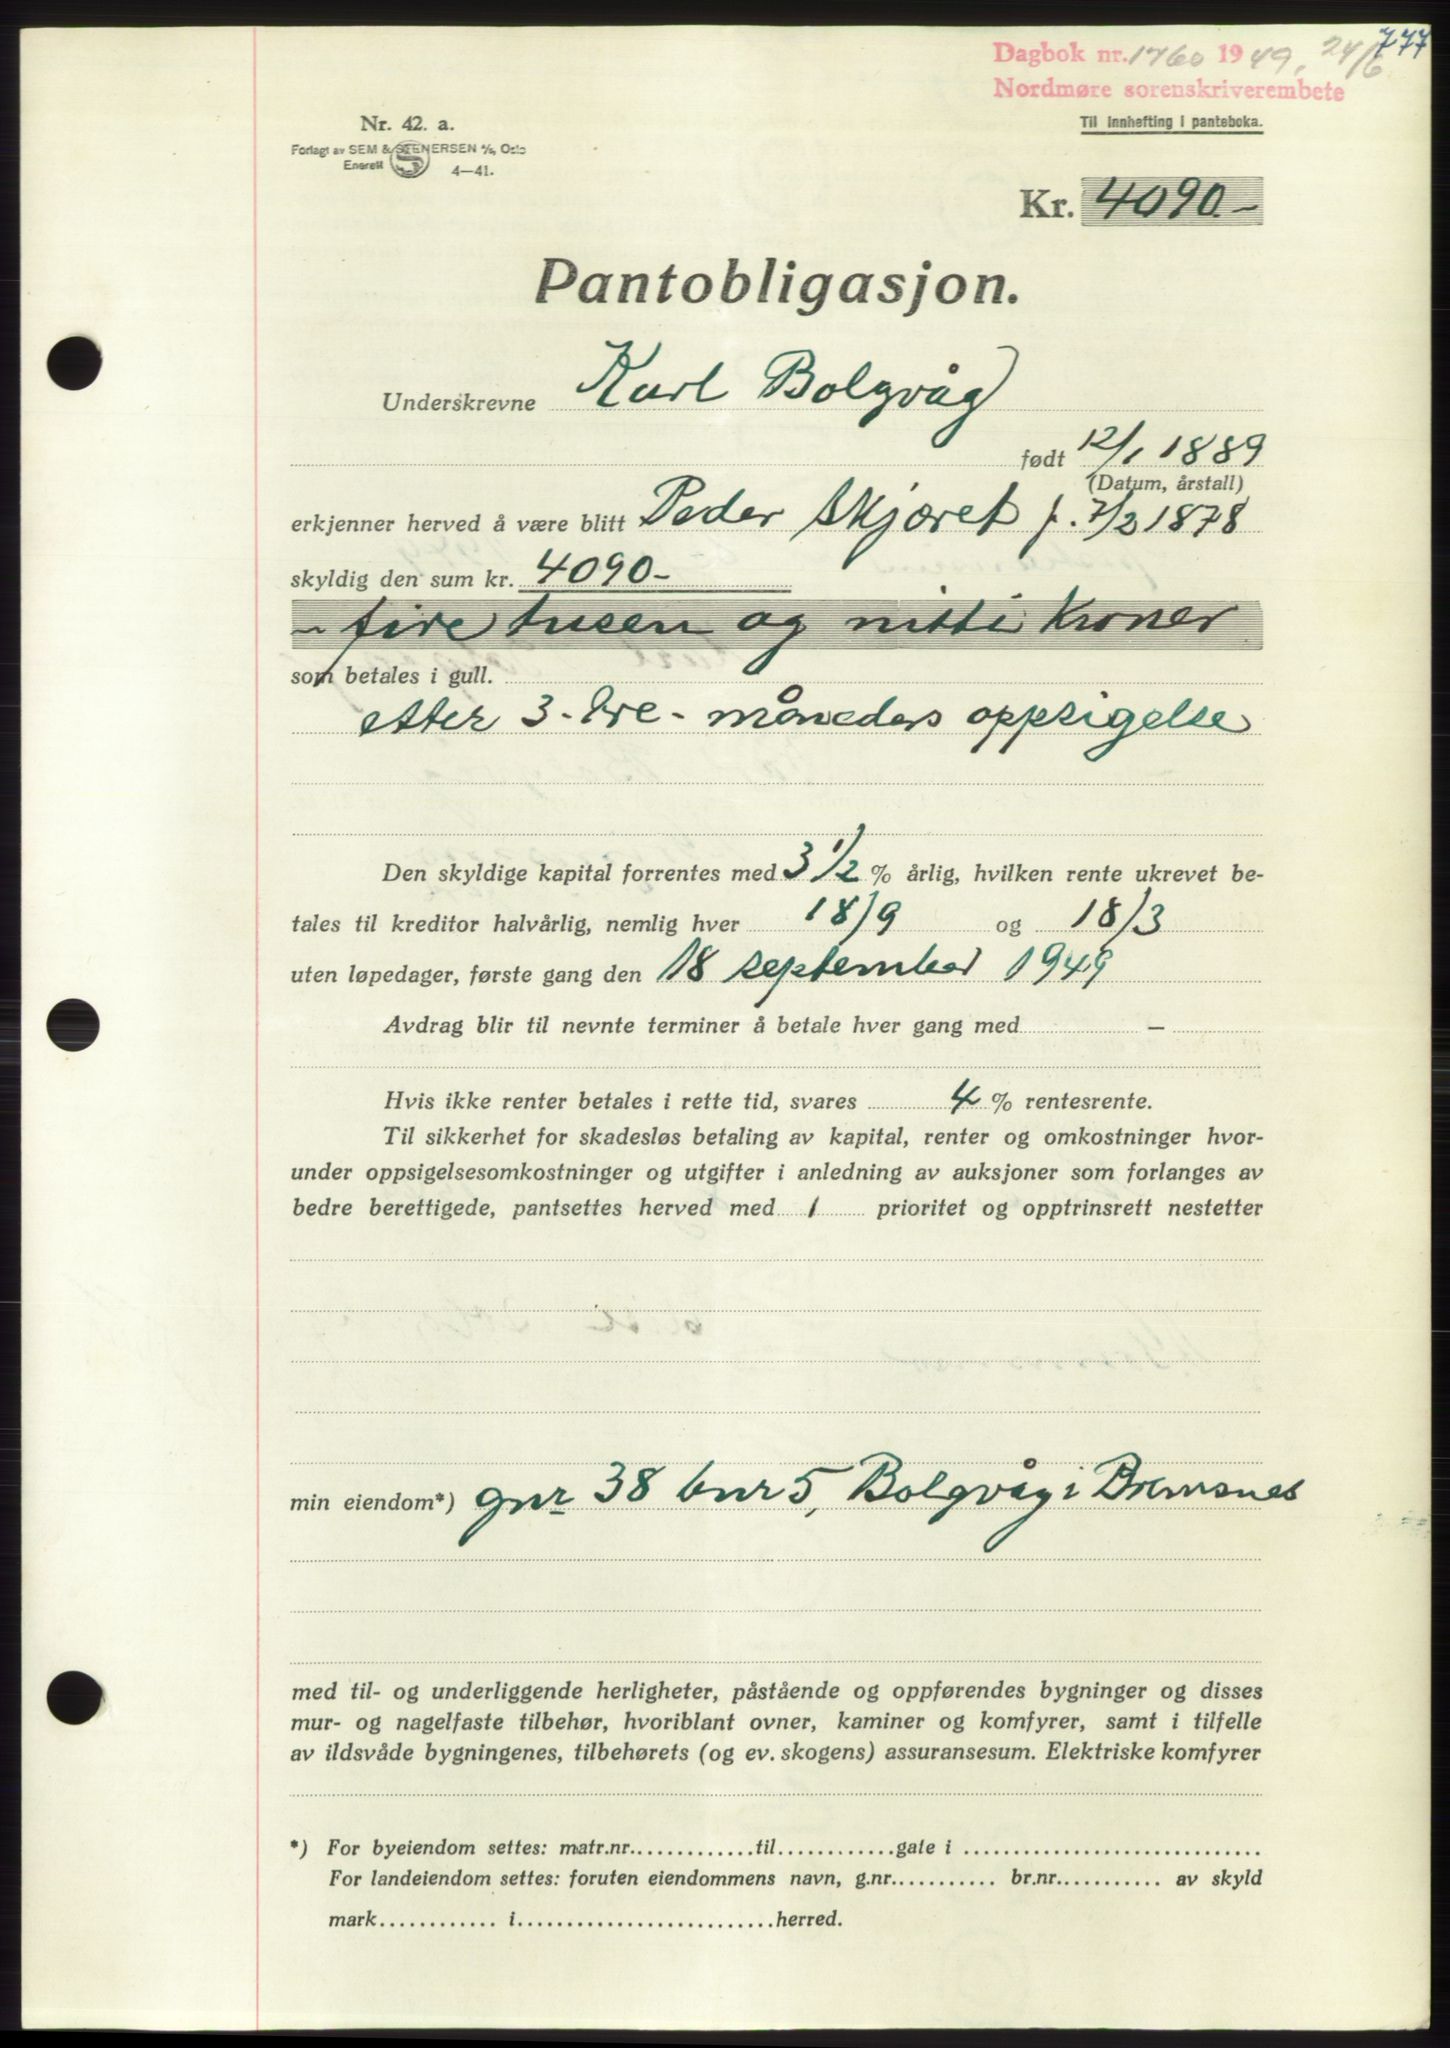 777
Dagbok nr. 1760 1949, 24/6
Nordmøre sorenskriverembete
Til innhefting i panteboka.
Nr. 42. a.
Forlagt av SEM & STENERSEN A/S, Oslo
Enerett
4—41.
Kr. 4090.-
Pantobligasjon.
Underskrevne Karl Bolgvåg
født 12/1 1889
(Datum, årstall)
erkjenner herved å være blitt Peder Skjæret f. 7/2 1878
skyldig den sum kr. 4090-
- fire tusen og nitti kroner
som betales i gull.
etter 3-tre- måneders oppsigelse
Den skyldige kapital forrentes med 3 1/2 % årlig, hvilken rente ukrevet be-
tales til kreditor halvårlig, nemlig hver 18/9 og 18/3
uten løpedager, første gang den 18 september 1949
Avdrag blir til nevnte terminer å betale hver gang med —
Hvis ikke renter betales i rette tid, svares 4 % rentesrente.
Til sikkerhet for skadesløs betaling av kapital, renter og omkostninger hvor-
under oppsigelsesomkostninger og utgifter i anledning av auksjoner som forlanges av
bedre berettigede, pantsettes herved med 1 prioritet og opptrinsrett nestetter
min eiendom*) gnr 38 bnr 5, Bolgvåg i Bremsnes
med til- og underliggende herligheter, påstående og oppførendes bygninger og disses
mur- og nagelfaste tilbehør, hvoriblant ovner, kaminer og komfyrer, samt i tilfelle
av ildsvåde bygningenes, tilbehørets (og ev. skogens) assuransesum. Elektriske komfyrer
*) For byeiendom settes: matr.nr.............til............gate i ..............................
For landeiendom settes: foruten eiendommens navn, g.nr........... br.nr........... av skyld
mark............ i..........................herred.